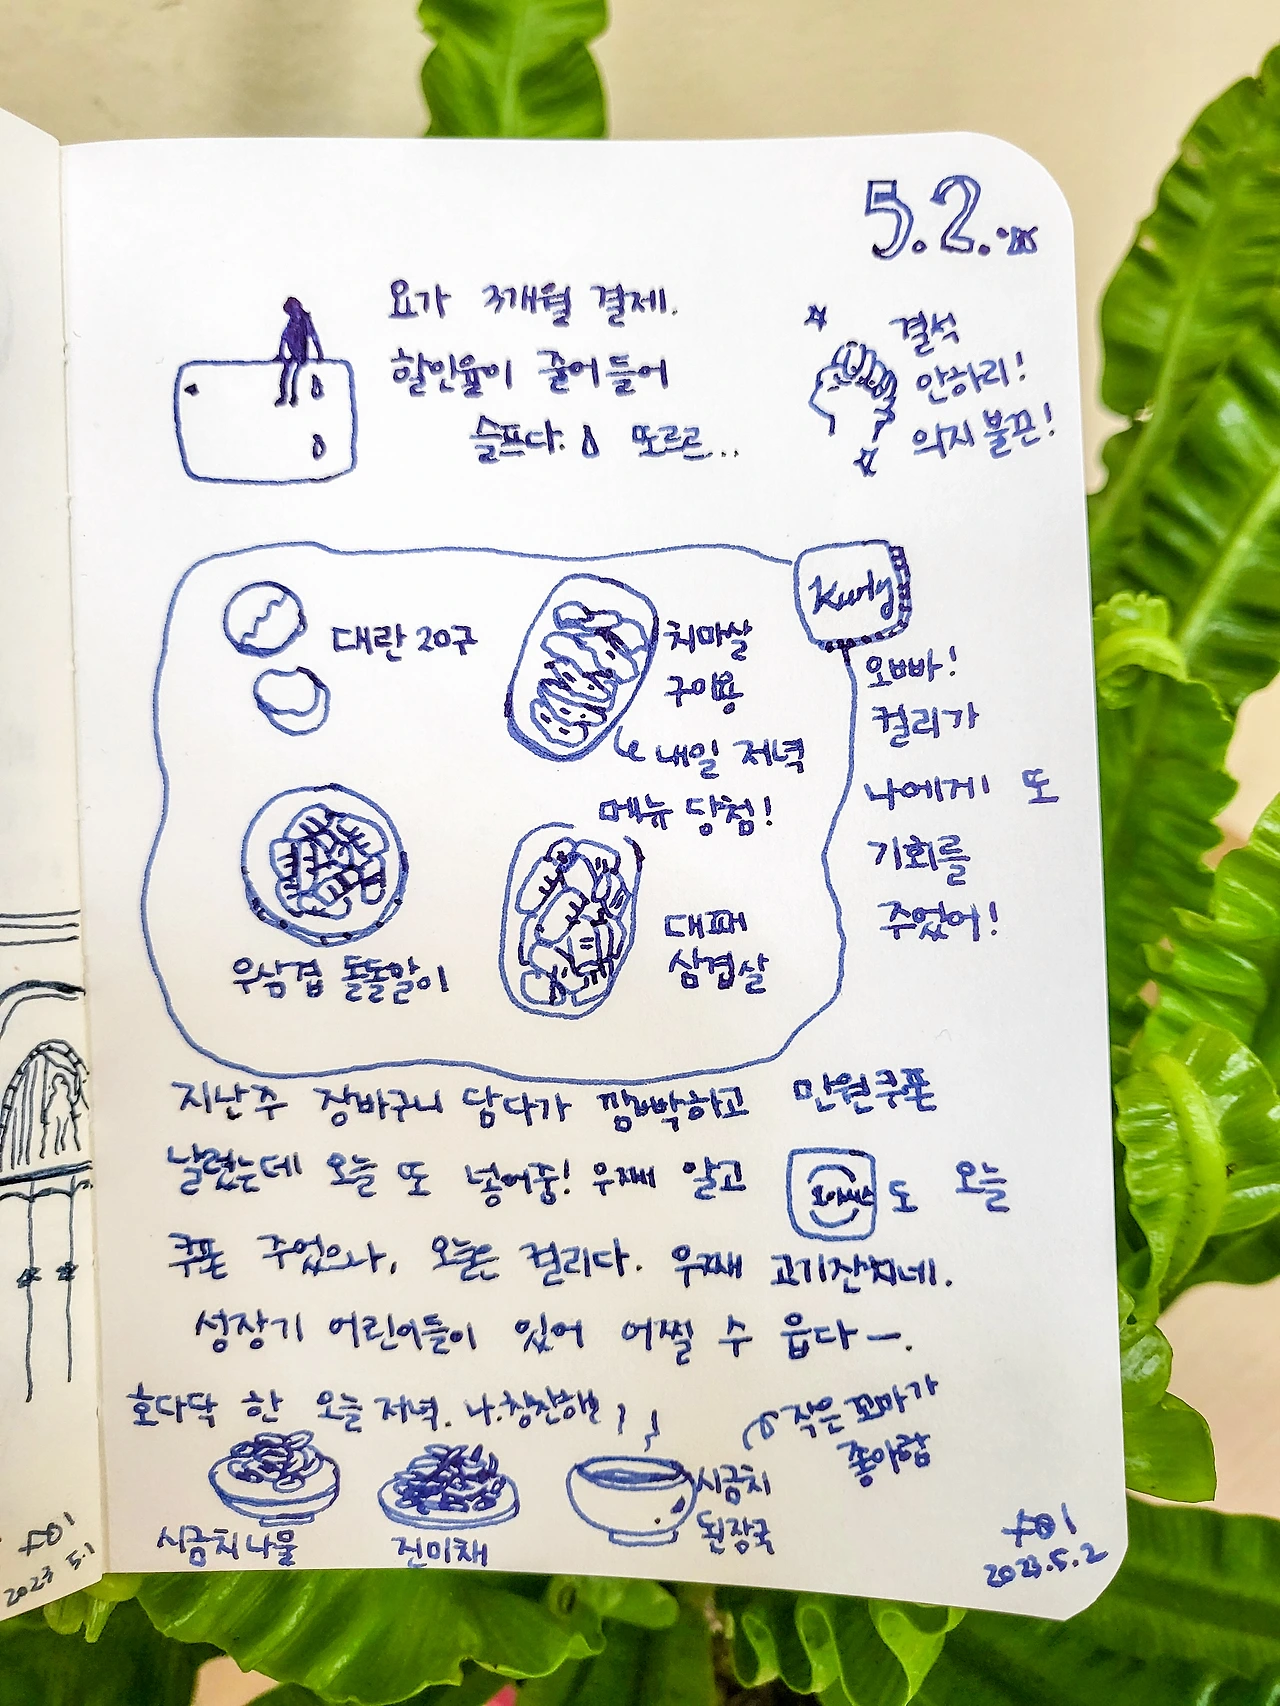 5.2.
요가 3개월 결제.
할인율이 줄어들어
슬프다. 또르르...
결석
안하리!
의지 불끈!
Kurly
대란 20구
치마살
구이용
내일 저녁
메뉴 당첨!
우삼겹 돌돌말이
대패
삼겹살
오빠!
컬리가
나에게 또
기회를
주었어!
지난주 장바구니 담다가 깜빡하고 만원쿠폰
날렸는데 오늘 또 넣어줌! 우째 알고 도 오늘
쿠폰 주었으나, 오늘은 컬리다. 우째 고기잔치네.
성장기 어린이들이 있어 어쩔 수 읍다ー.
호다닥 한 오늘 저녁. 나.칭찬해!
작은 꼬마가
좋아함
시금치나물
진미채
시금치
된장국
2023.5.2
2023 5.1